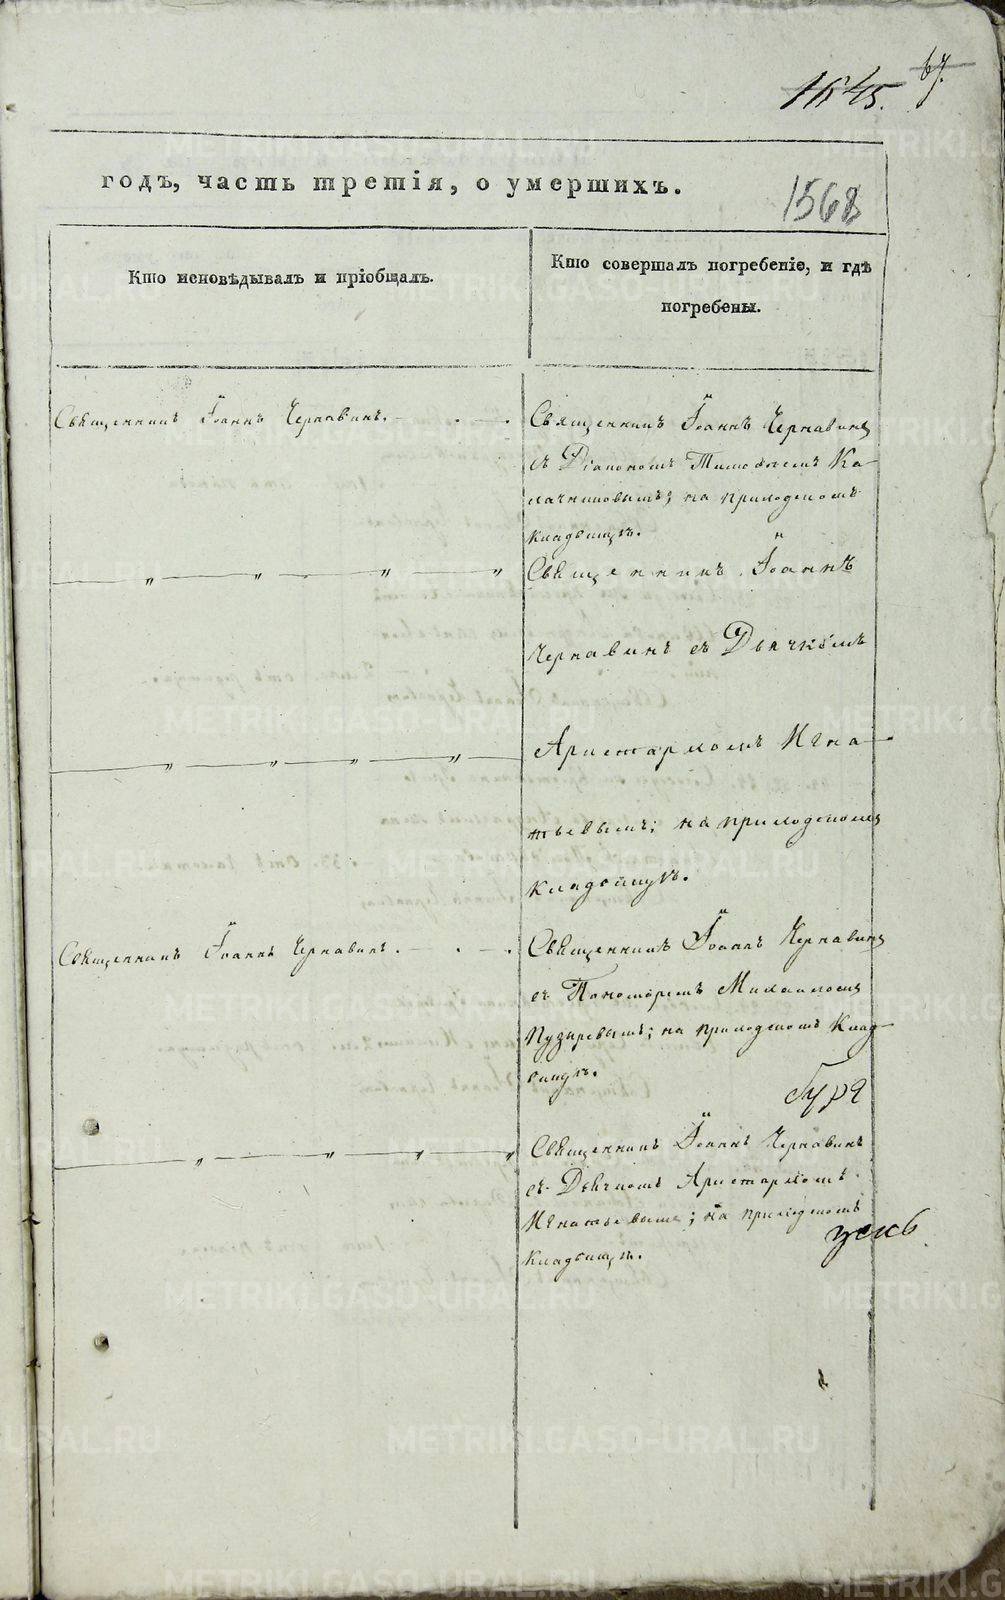 1645.
67.
годъ, часть третія, о умершихъ.
1568
Кто исповѣдывалъ и пріобщалъ.
Кто совершалъ погребеніе, и гдѣ
погребены.
Священникъ Іоаннъ Чернавинъ.
Священникъ Іоаннъ Чернавинъ
съ Діакономъ Тимофеемъ Ка-
лачниковымъ; на приходскомъ
кладбищѣ.
Священникъ Іоаннъ
Чернавинъ съ Дьячкомъ
Аристархомъ Игна-
тьевымъ; на приходскомъ
кладбищѣ.
Священникъ Іоаннъ Чернавинъ.
Священникъ Іоаннъ Чернавинъ
съ Пономаремъ Михаиломъ
Пузыревымъ; на приходскомъ Клад-
бищѣ.
Священникъ Іоаннъ Чернавинъ
съ Дьячкомъ Аристархомъ
Игнатьевымъ; на приходскомъ
Кладбищѣ.
METRIKI.GASO-URAL.RU